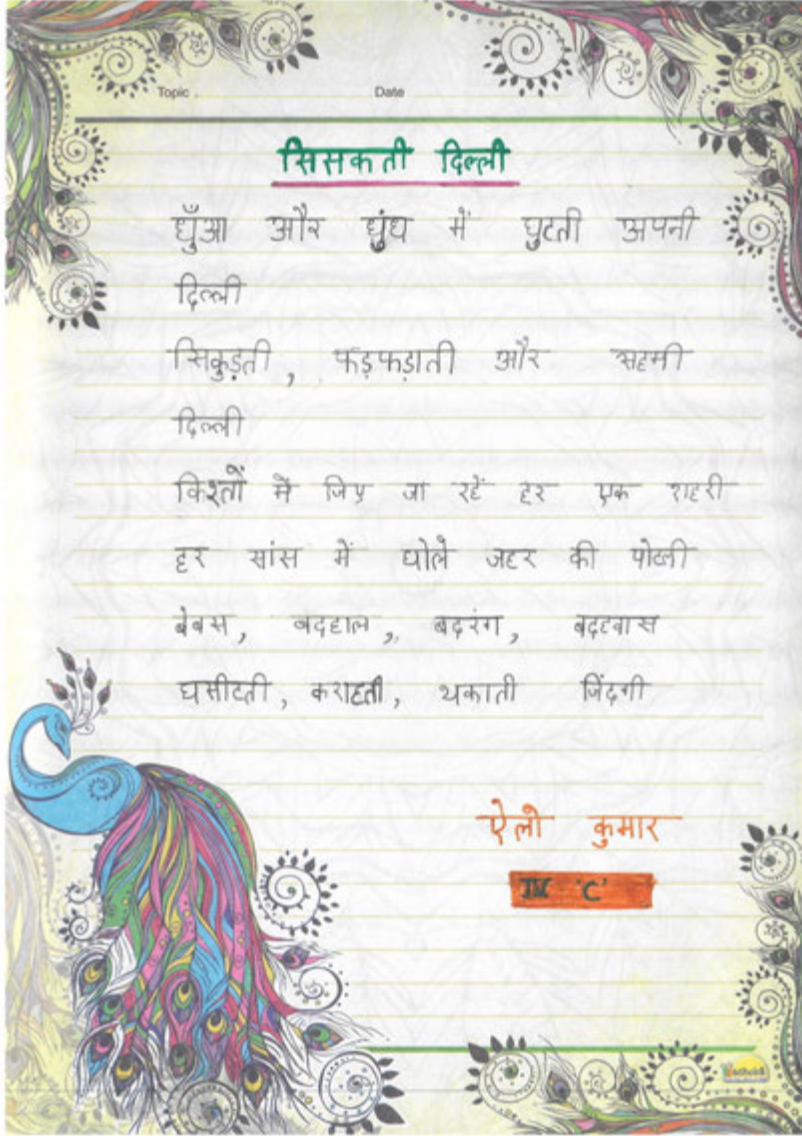 Topic
Date
सिसकती दिल्ली
घुँआ और घुंघ में घुटती अपनी
दिल्ली
सिकुड़ती, फड़फड़ाती और सहमी
दिल्ली
किश्तों में जिए जा रहें हर एक शहरी
हर सांस में घोले जहर की पोटली
बेबस, बदहाल, बदरंग, बदहवास
घसीटती, कराहती, थकाती जिंदगी
ऐलो कुमार
IV 'C'